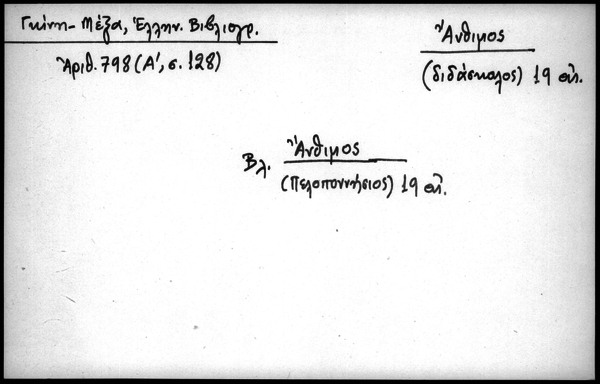 Γκίνη - Μέξα, Ἑλλην. Βιβλιογρ.
Ἀριθ. 798 (Α', σ. 128)
Ἄνθιμος
(διδάσκαλος) 19 αἰ.
Βλ. Ἄνθιμος
(Πελοποννήσιος) 19 αἰ.